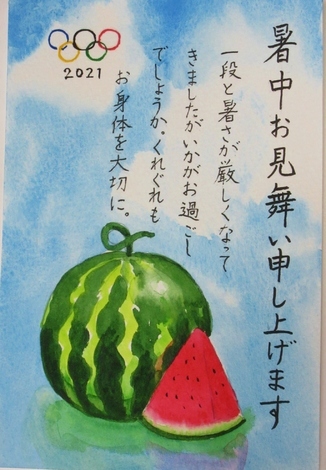 暑中お見舞い申し上げます
一段と暑さが厳しくなって
きましたがいかがお過ごし
でしょうか。くれぐれも
お身体を大切に。
2021